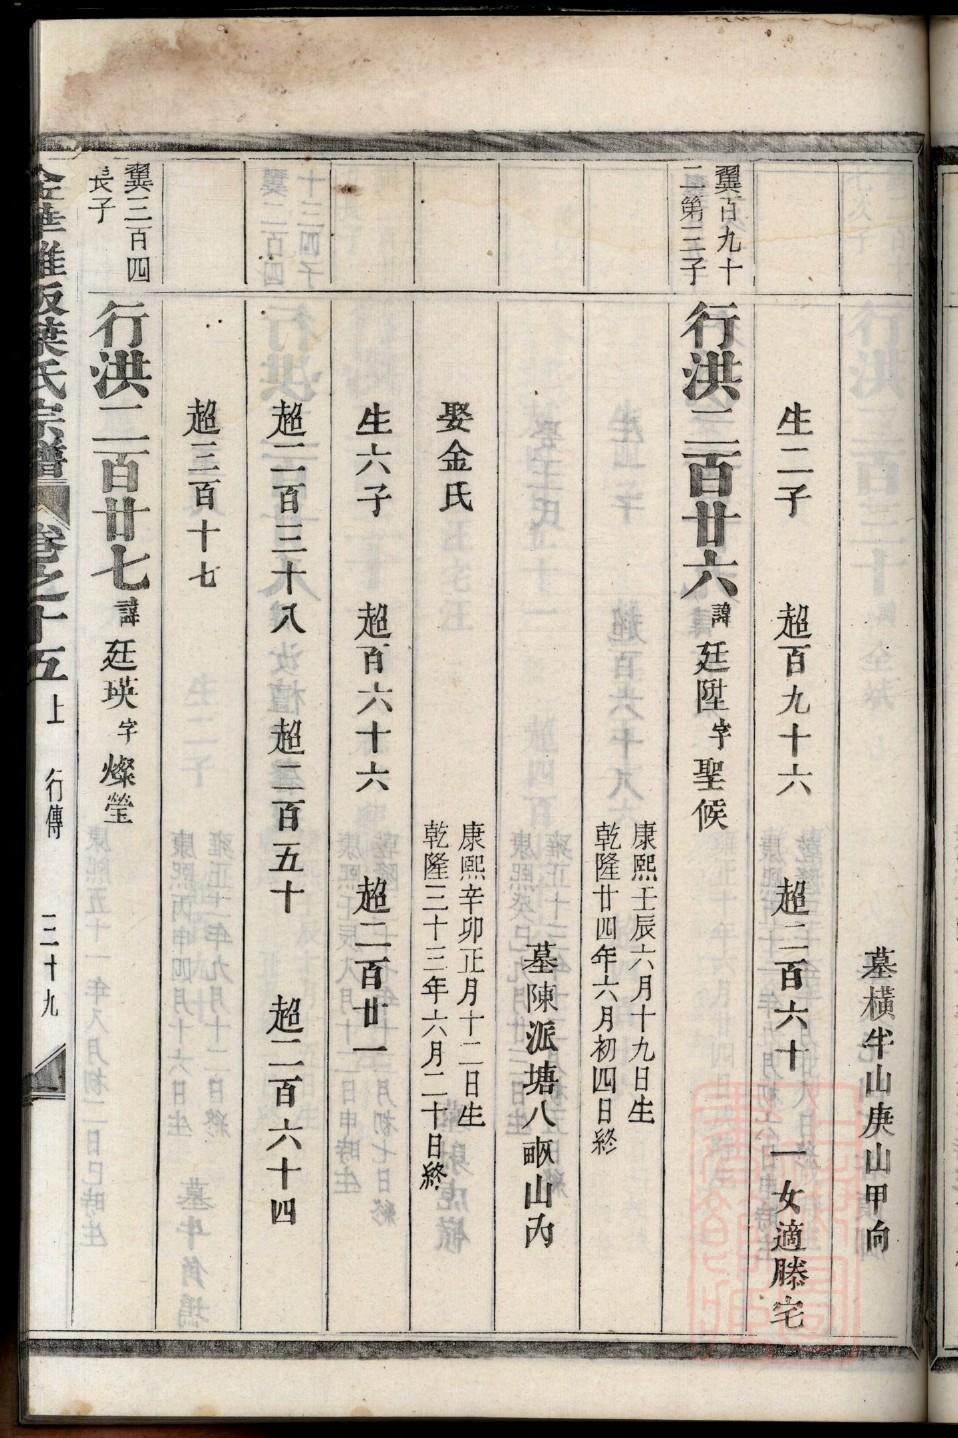 墓橫牛山庚山甲向
生二子 超百九十六 超二百六十 一女適滕宅
翼百九十
二第三子
行洪二百廿六 諱廷陞字聖候
康熙壬辰六月十九日生
乾隆廿四年六月初四日終
墓陳派塘八畝山內
娶金氏
康熙辛卯正月十二日生
乾隆三十三年六月二十日終
生六子 超百六十六 超二百廿一
超二百三十八 超二百五十 超二百六十四
超三百十七
翼三百四
長子
行洪二百廿七 諱廷瑛字燦瑩
金華 葉氏宗譜 卷之十五上 行傳 三十九